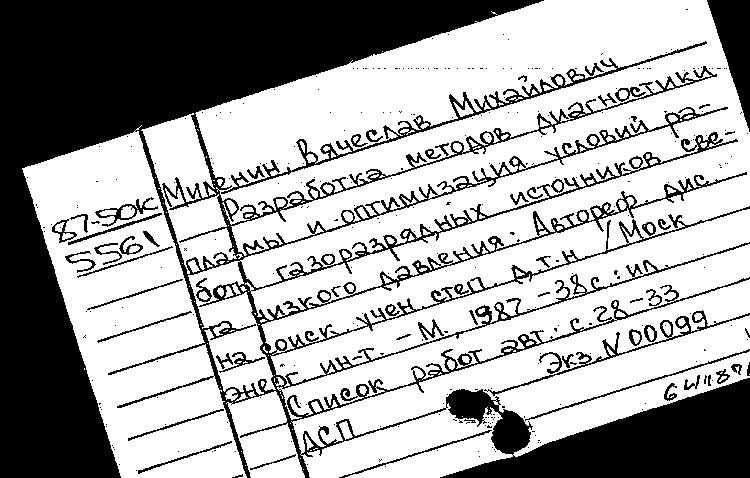 87-50К
5561
Миленин, Вячеслав Михайлович
Разработка методов диагностики
плазмы и оптимизация условий ра-
боты газоразрядных источников све-
та низкого давления: Автореф. дис.
на соиск. учен степ. д.т.н / Моск
энерг. ин-т. - М., 1987. - 38с.: ил.
Список работ авт.: с. 28-33
ДСП Экз. N 00099